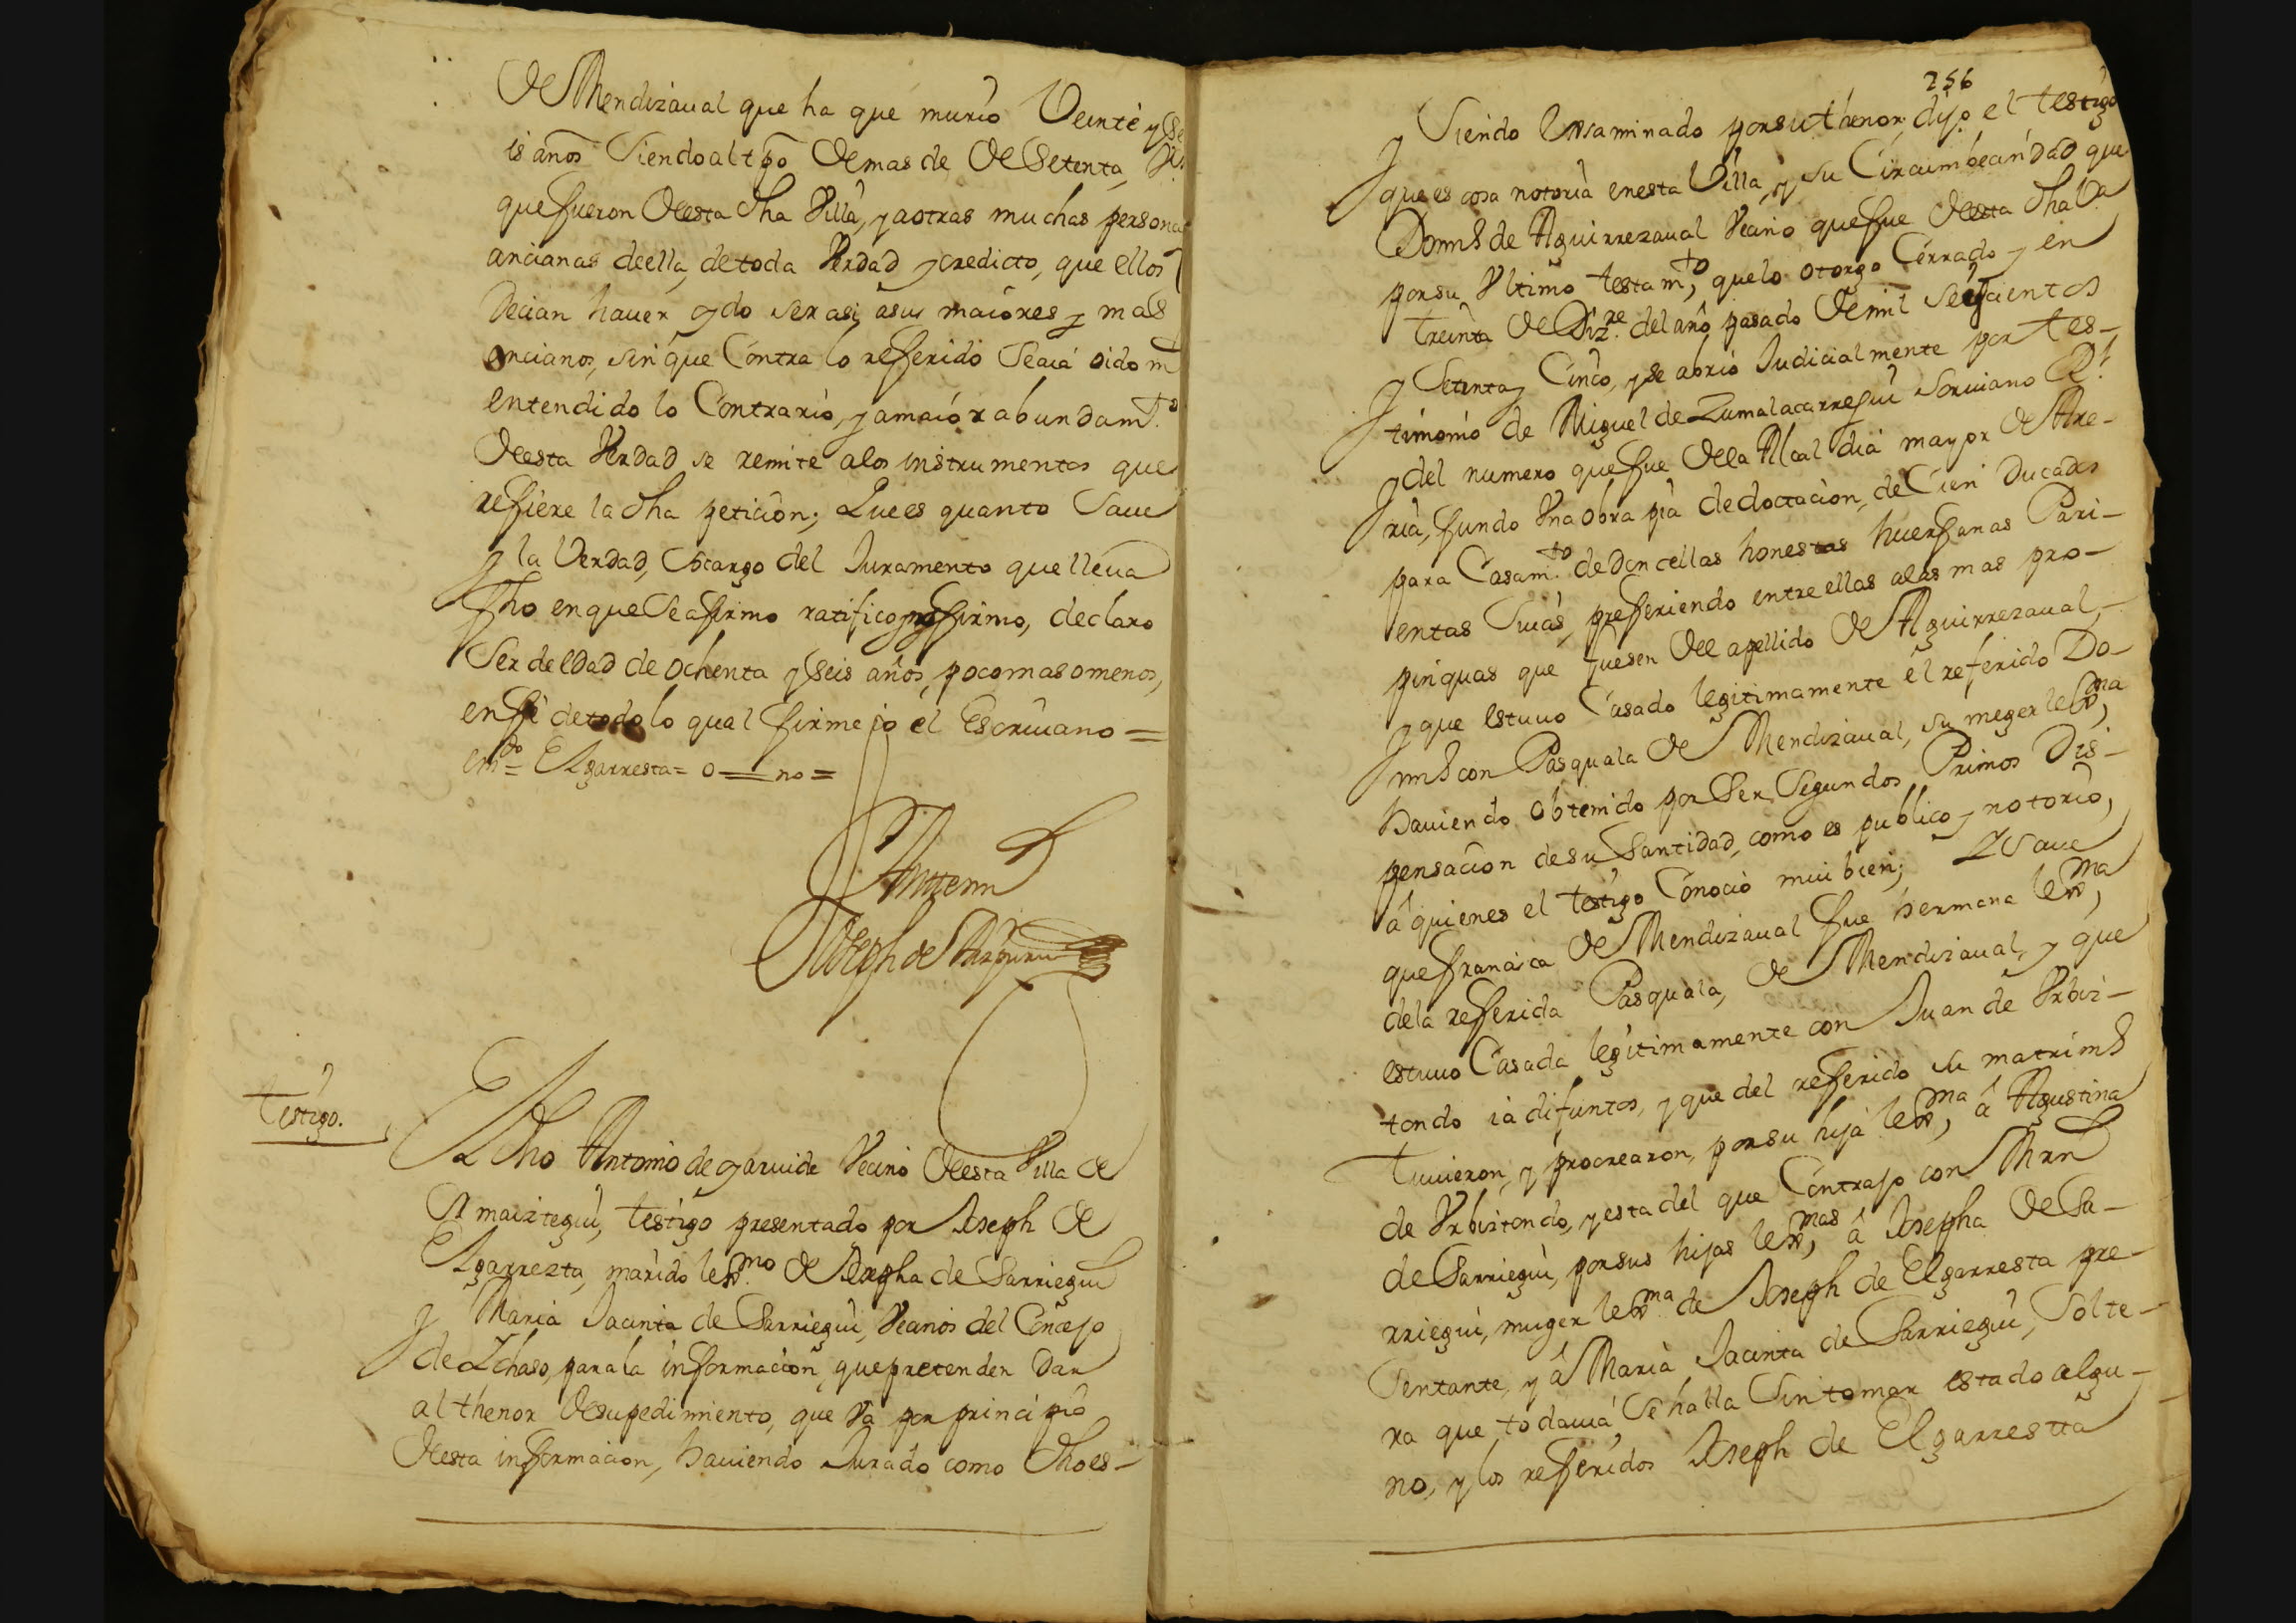 De Mendizaual que ha que murio Veinte y se
is años siendo al tpo de mas de de Setenta,
que fueron desta dha Villa, y a otras muchas persona
ancianas de ella, de toda Verdad y credicto, que ellos
decian hauer oydo ser asi, a sus maiores y mas
ancianos, sin que Contra lo refferido se aia oido ni
entendido lo Contrario, y a maior abundamto
desta Verdad se remite a los instrumentos que
refiere la dha peticion; Que es quanto Saue
y la Verdad, so cargo del Juramento que lleua
fho en que se afirmo ratifico y no firmo, declaro
Ser de edad de ochenta y seis años, poco mas o menos,
en fe de todo lo qual firme io el Escriuano =
emdo = Elgarresta = o = no =
Antemi
Joseph de Aizpuru
Testigo.
El dho Antonio de Garuide Vecino desta Villa de
Amaiztegui, testigo presentado por Joseph de
Elgarrezta, marido legmo de Josepha de Sarriegui
y Maria Jacinta de Sarriegui, Vecinos del Concejo
de Ichaso, para la informacion, que pretenden dar
al thenor de su pedimiento, que Va por principio
desta informacion, hauiendo Jurado como dho es-
256
y Siendo Exsaminado por su thenor, dijo el testigo
que es cosa notoria en esta Villa, y su Circumbecindad que
Domins de Aguirrezaual Vecino que fue desta dha Va
por su Vltimo testamto, que lo otorgo Cerrado y en
treinta de Dizre del año pasado de mil seiscientos
y Setenta y Cinco, y se abrio Judicialmente por tes-
timonio de Miguel de Zumalacarregui Scriuano Rl
y del numero que fue de la Alcaldia mayor de Are-
ria, fundo Vna obra pia de doctacion, de Cien Ducados
para Casamto de doncellas honestas huerfanas Pari-
entas Suias, prefferiendo entre ellas a las mas pro-
pinquas que fuesen del apellido de Aguirrezaual,
y que estuuo Casado legitimamente el referido Do-
mins con Pasquala de Mendizaual, su muger legma,
hauiendo obtenido por Ser Segundos Primos Dis-
pensacion de su Santidad, como es publico y notorio,
a quienes el testigo Conocio mui bien; Y Saue
que francisca de Mendizaual fue hermana legma,
de la refferida Pasquala, de Mendizaual, y que
estuuo Casada legitimamente con Juan de Vrbiz-
tondo ia difuntos, y que del refferido su matrimo
tuuieron, y procrearon, por su hija legma, a Agustina
de Vrbiztondo, y esta del que Contrajo con Mrn
de Sarriegui, por sus hijas legmas, a Josepha de Sa-
rriegui, muger legma de Joseph de Elgarresta pre-
sentante, y a Maria Jacinta de Sarriegui, Solte-
ra que todauia, se halla Sin tomar estado algu-
no, y los refferidos Joseph de Elgarrestta